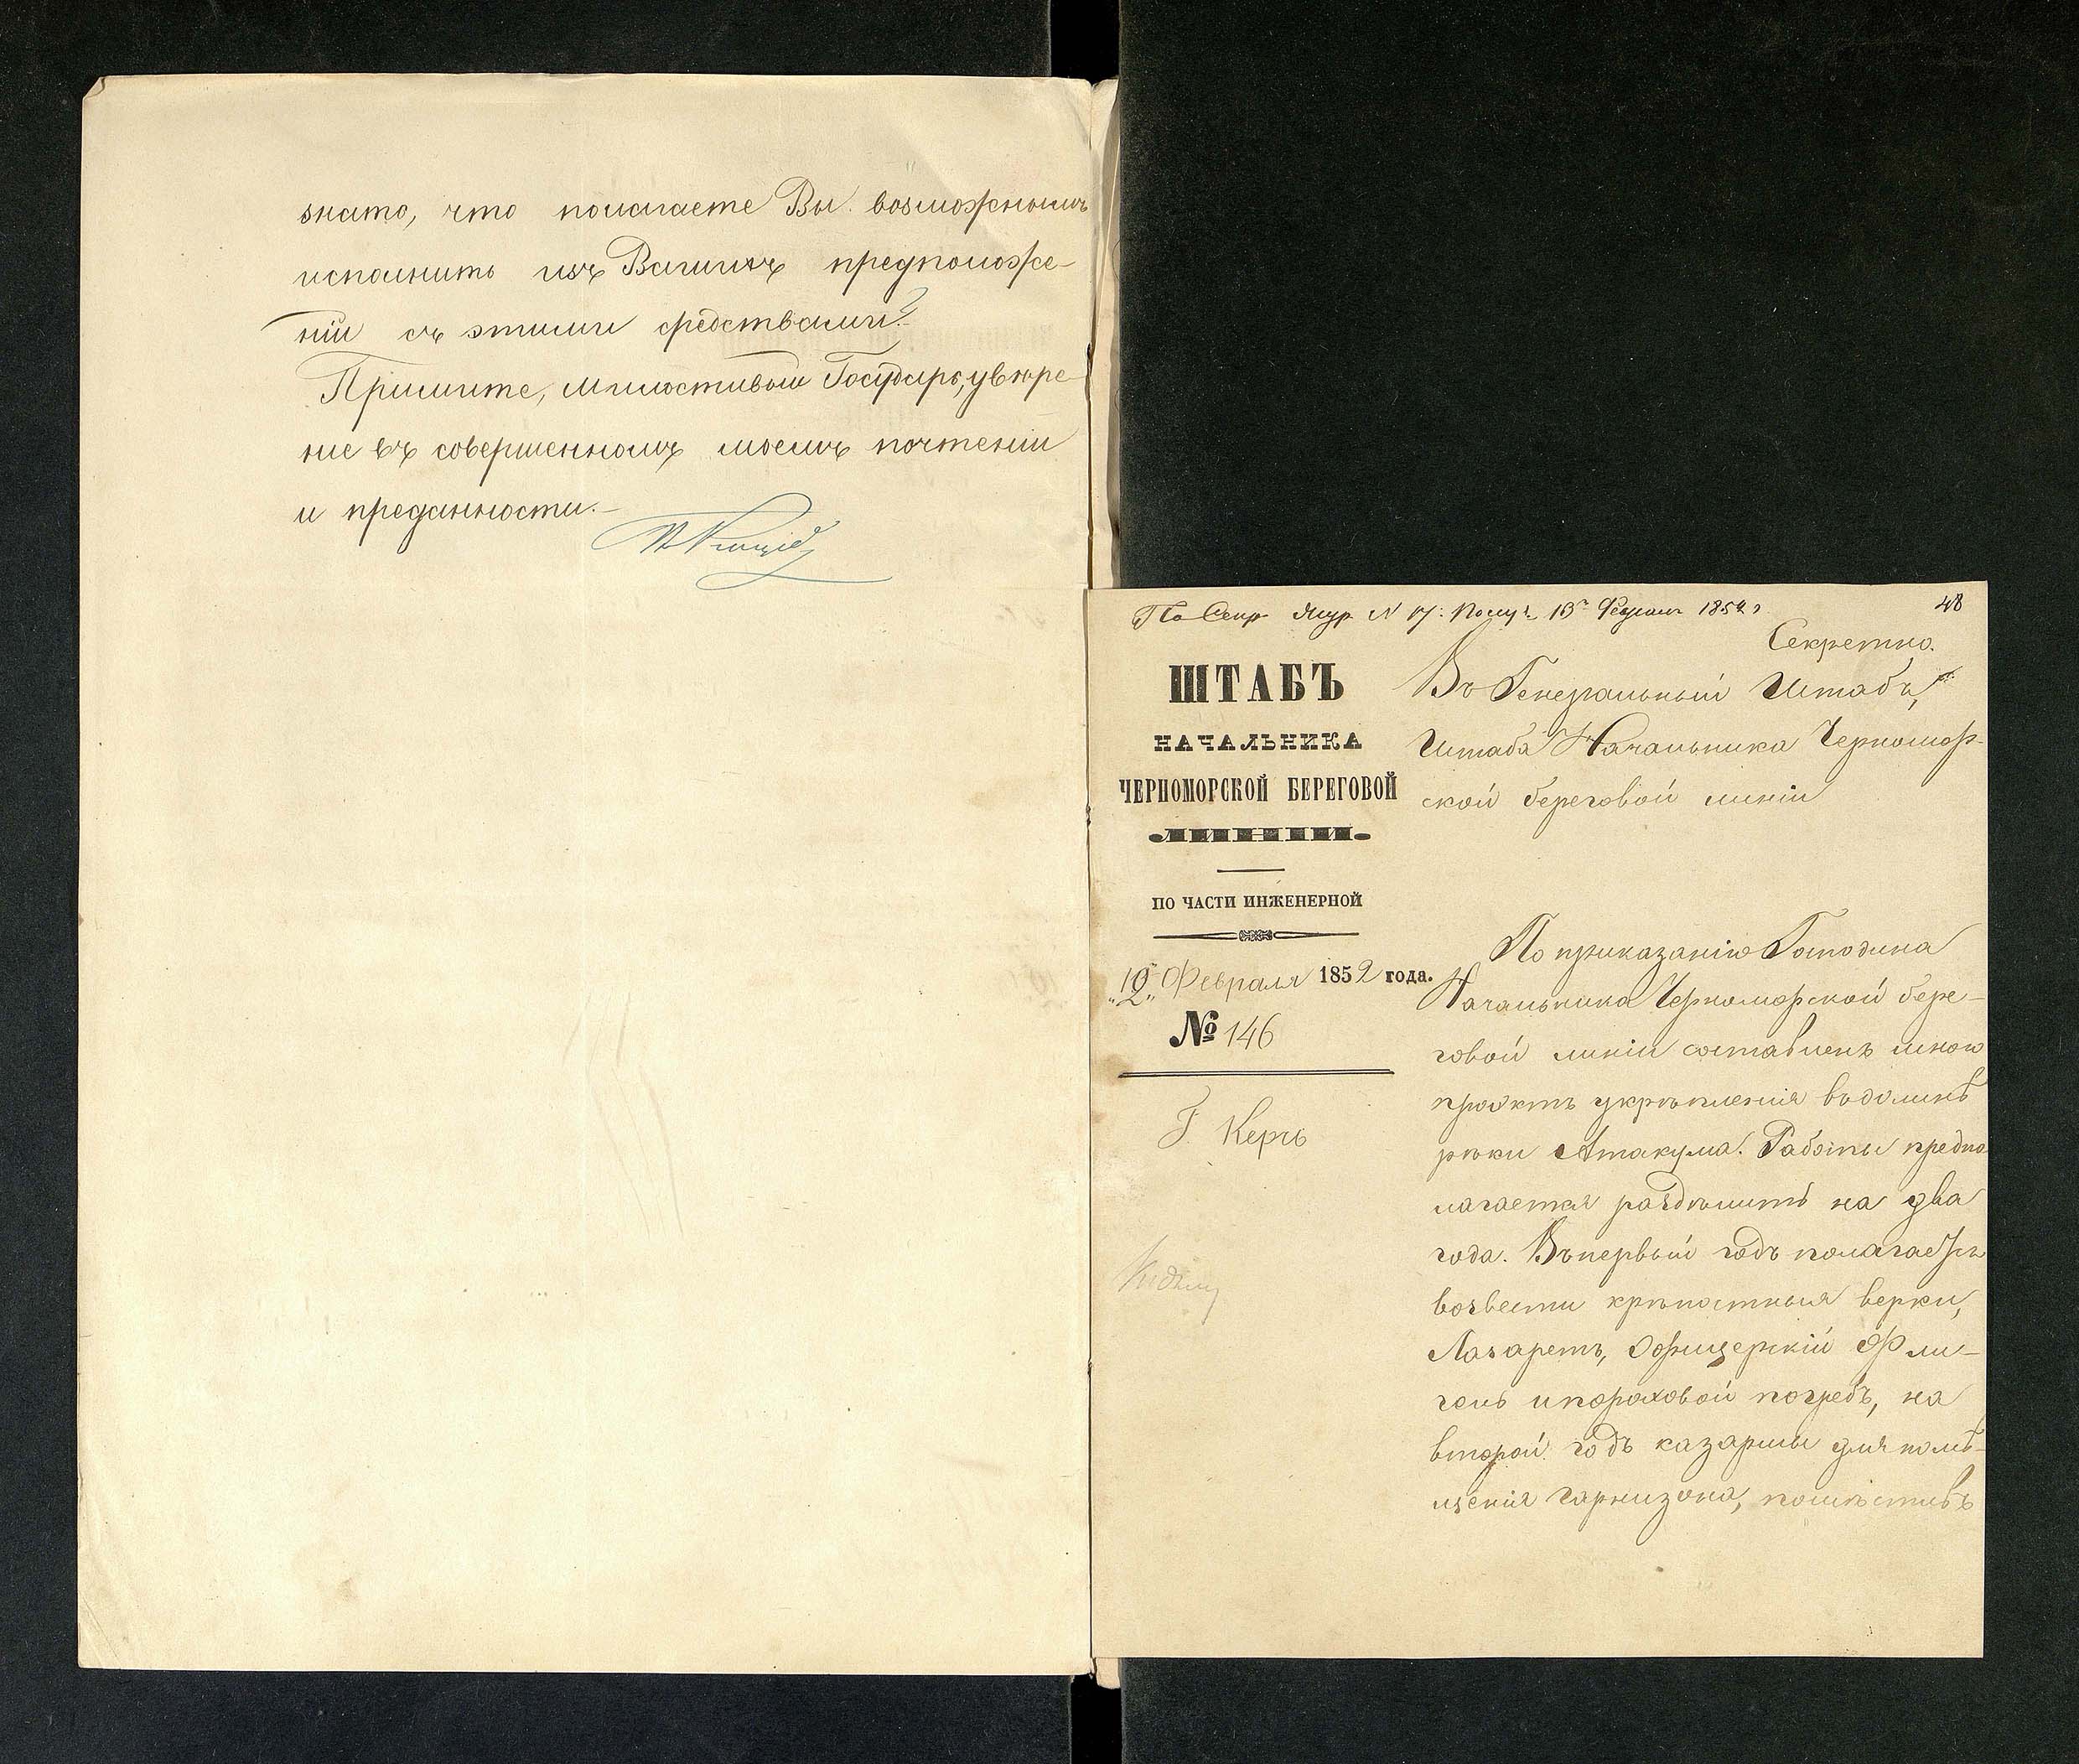 знать, что полагаете Вы возможнымъ
исполнить изъ Вашихъ предположе-
ній съ этими средствами?
Примите, Милостивый Государь, увѣре-
ніе въ совершенномъ моемъ почтеніи
и преданности.
По Секр. Жур. N 17. Получ. 13го Февраля 1852 г.
48
Секретно.
ШТАБЪ
НАЧАЛЬНИКА
ЧЕРНОМОРСКОЙ БЕРЕГОВОЙ
ЛИНІИ.
ПО ЧАСТИ ИНЖЕНЕРНОЙ
„12„ Февраля 1852 года.
№ 146
Г. Керчь
Въ Генеральный Штабъ,
Штаба Начальника Черномор-
ской береговой линіи
По приказанію Господина
Начальника Черноморской бере-
говой линіи составленъ мною
проэктъ укрѣпленія въ долинѣ
рѣки Атакума. Работы предпо
лагается раздѣлить на два
года. Въ первый годъ полагается
возвести крѣпостныя верки,
Лазаретъ, Офицерскій Фли-
гель и пороховой погребъ, на
второй годъ казармы для помѣ-
щенія гарнизона, помѣстивъ